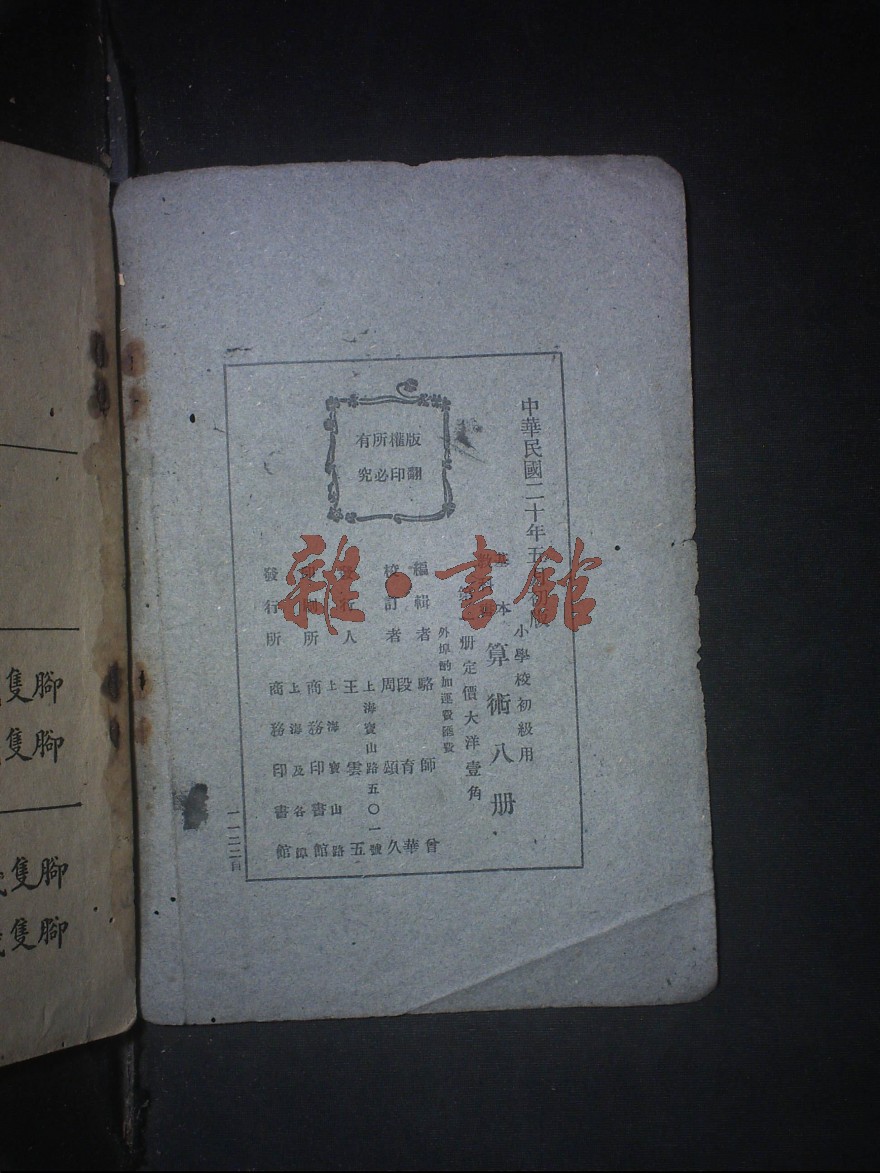 中華民國二十年五月初版
小學校初級用
基本
教科書
算術八册
第一册定價大洋壹角
外埠酌加運費匯費
編輯者 駱師曾
段育華
校訂者 周頌久
上海寶山路五〇一號
發行人 王雲五
上海寶山路
印刷所 商務印書館
上海及各埠
發行所 商務印書館
版權所有
翻印必究
雜·書館
隻腳
隻腳
隻腳
隻腳